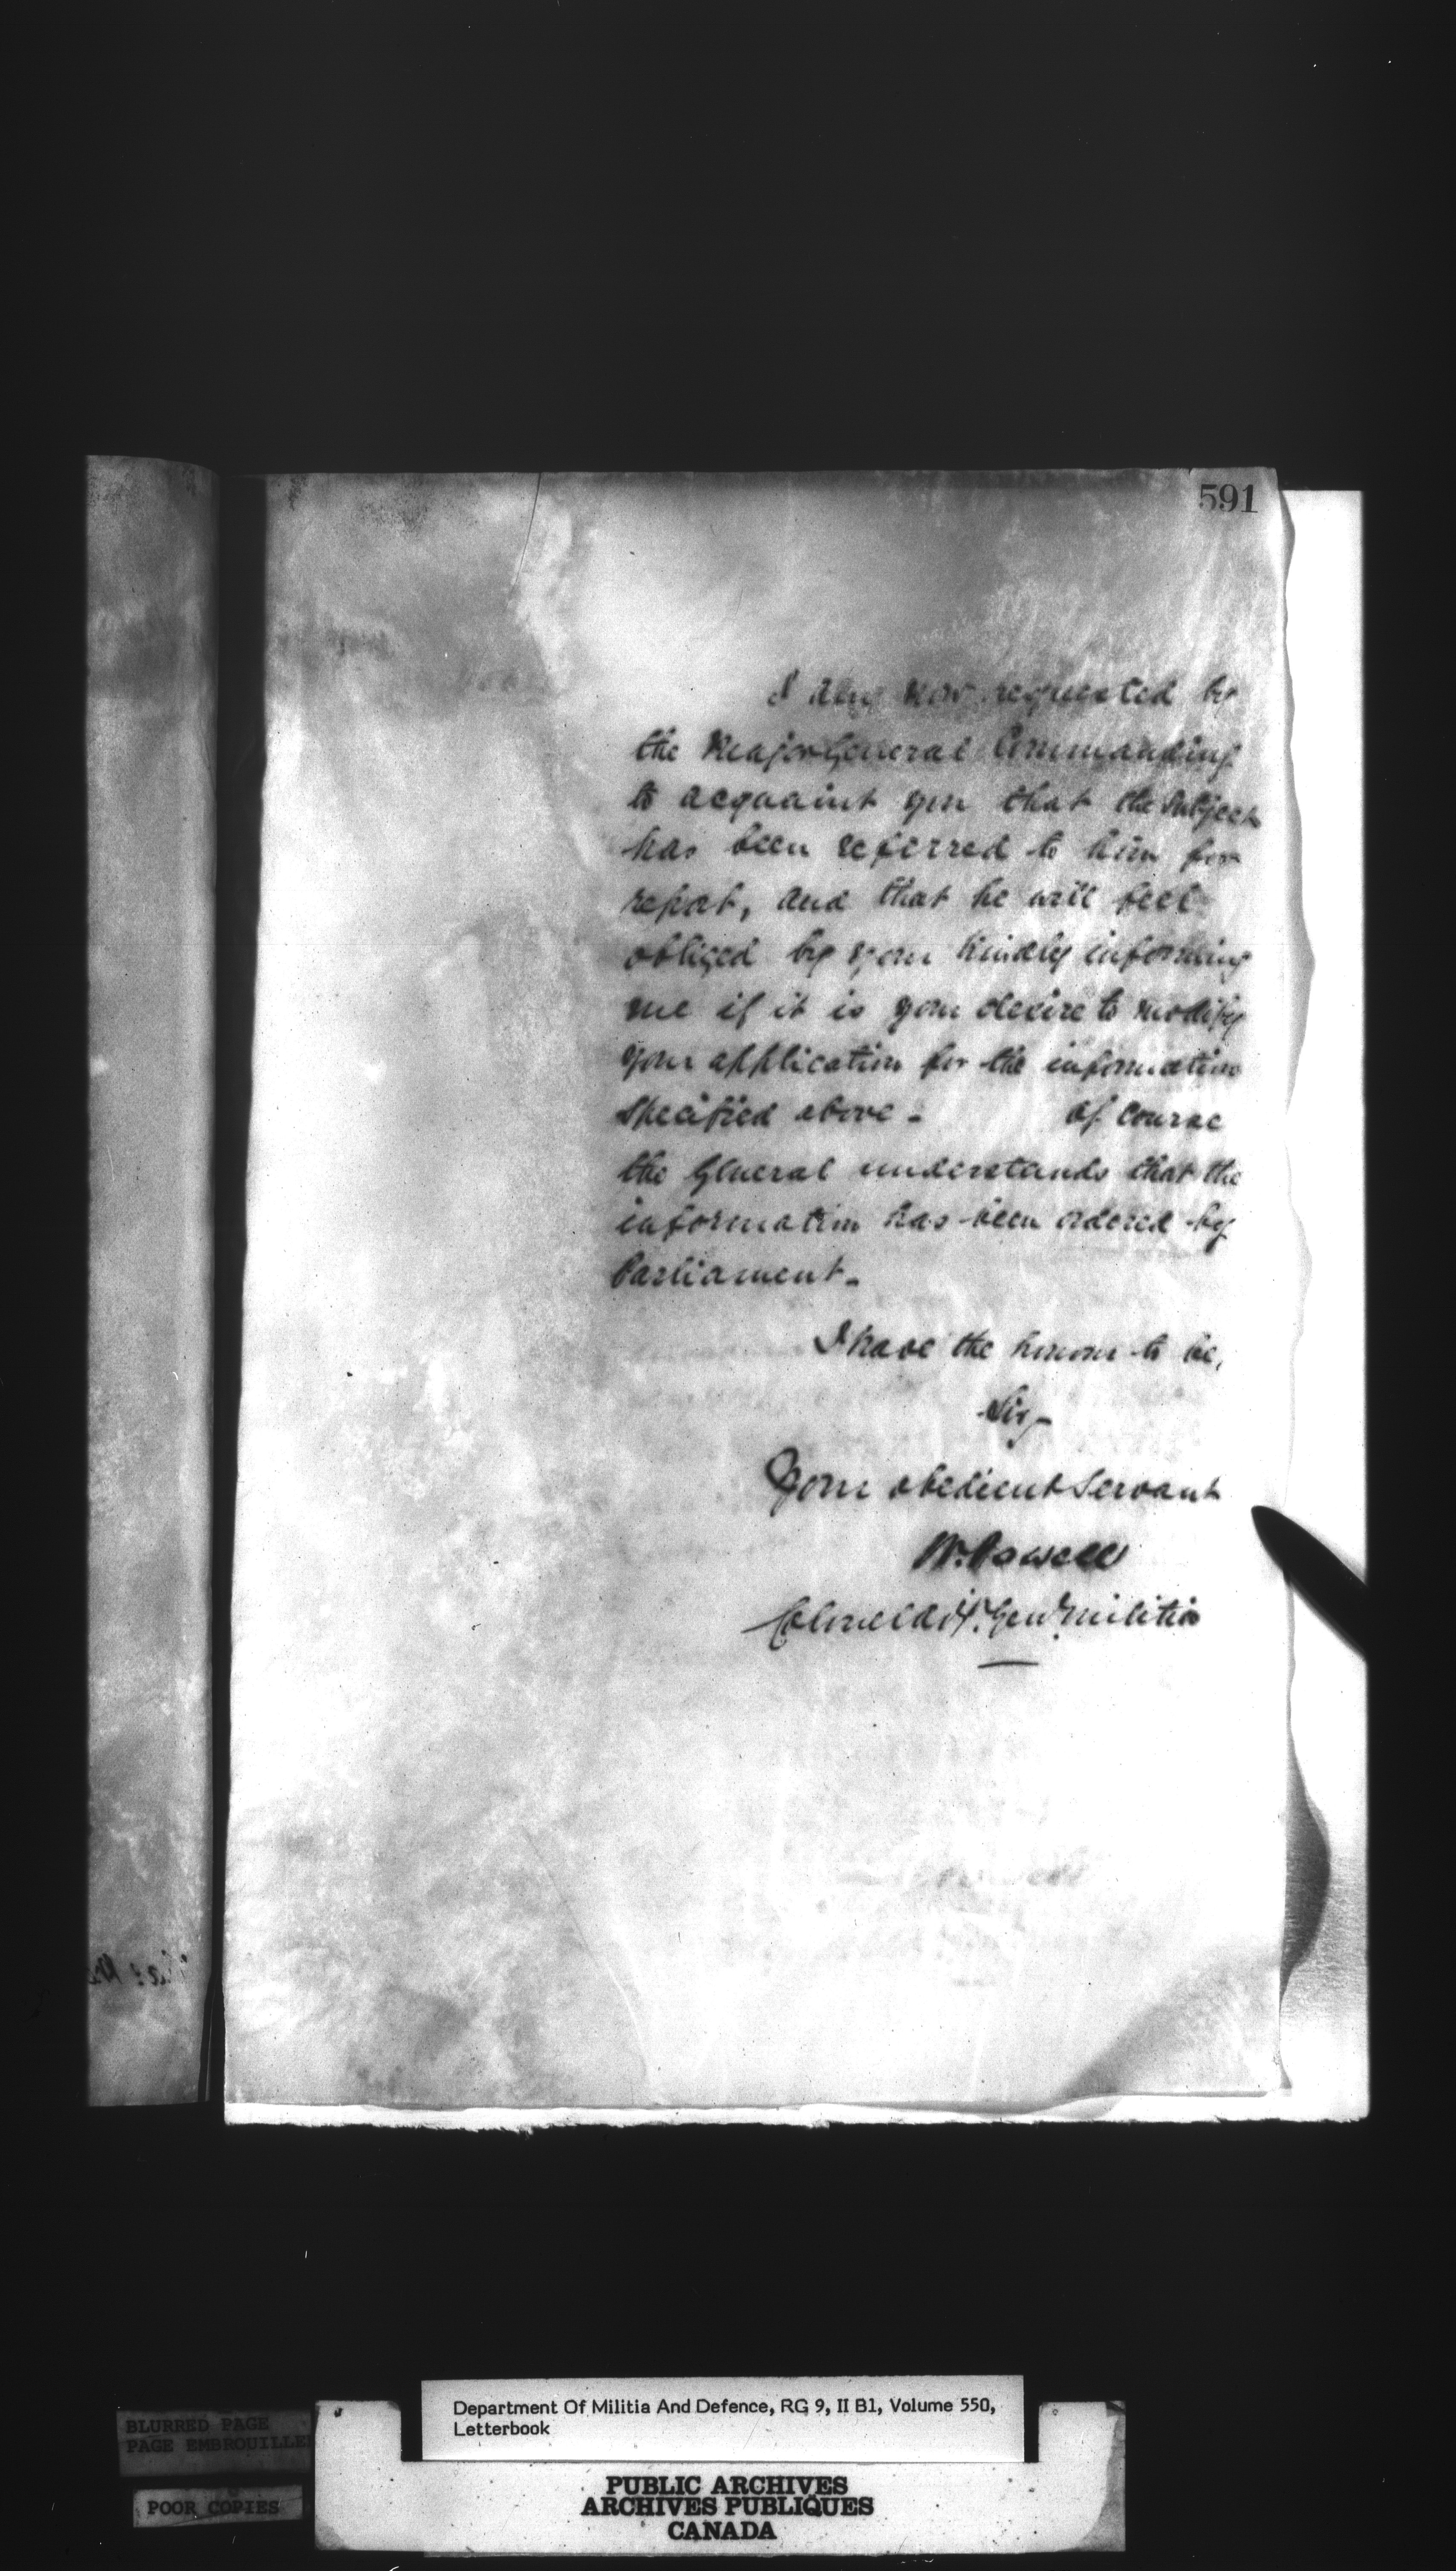 591
I am now requested by
the Major General Commanding
to acquaint you that the subject
has been referred to him for
report, and that he will feel
obliged by your kindly informing
me if it is your desire to modify
your application for the information
specified above - Of course
the General understands that the
information has been ordered by
Parliament -
I have the honour to be,
Sir,
Your obedient Servant
W. Powell
Colonel Adjt. Genl. Militia
Department Of Militia And Defence, RG 9, II B1, Volume 550,
Letterbook
BLURRED PAGE
PAGE EMBROUILLE
POOR COPIES
PUBLIC ARCHIVES
ARCHIVES PUBLIQUES
CANADA